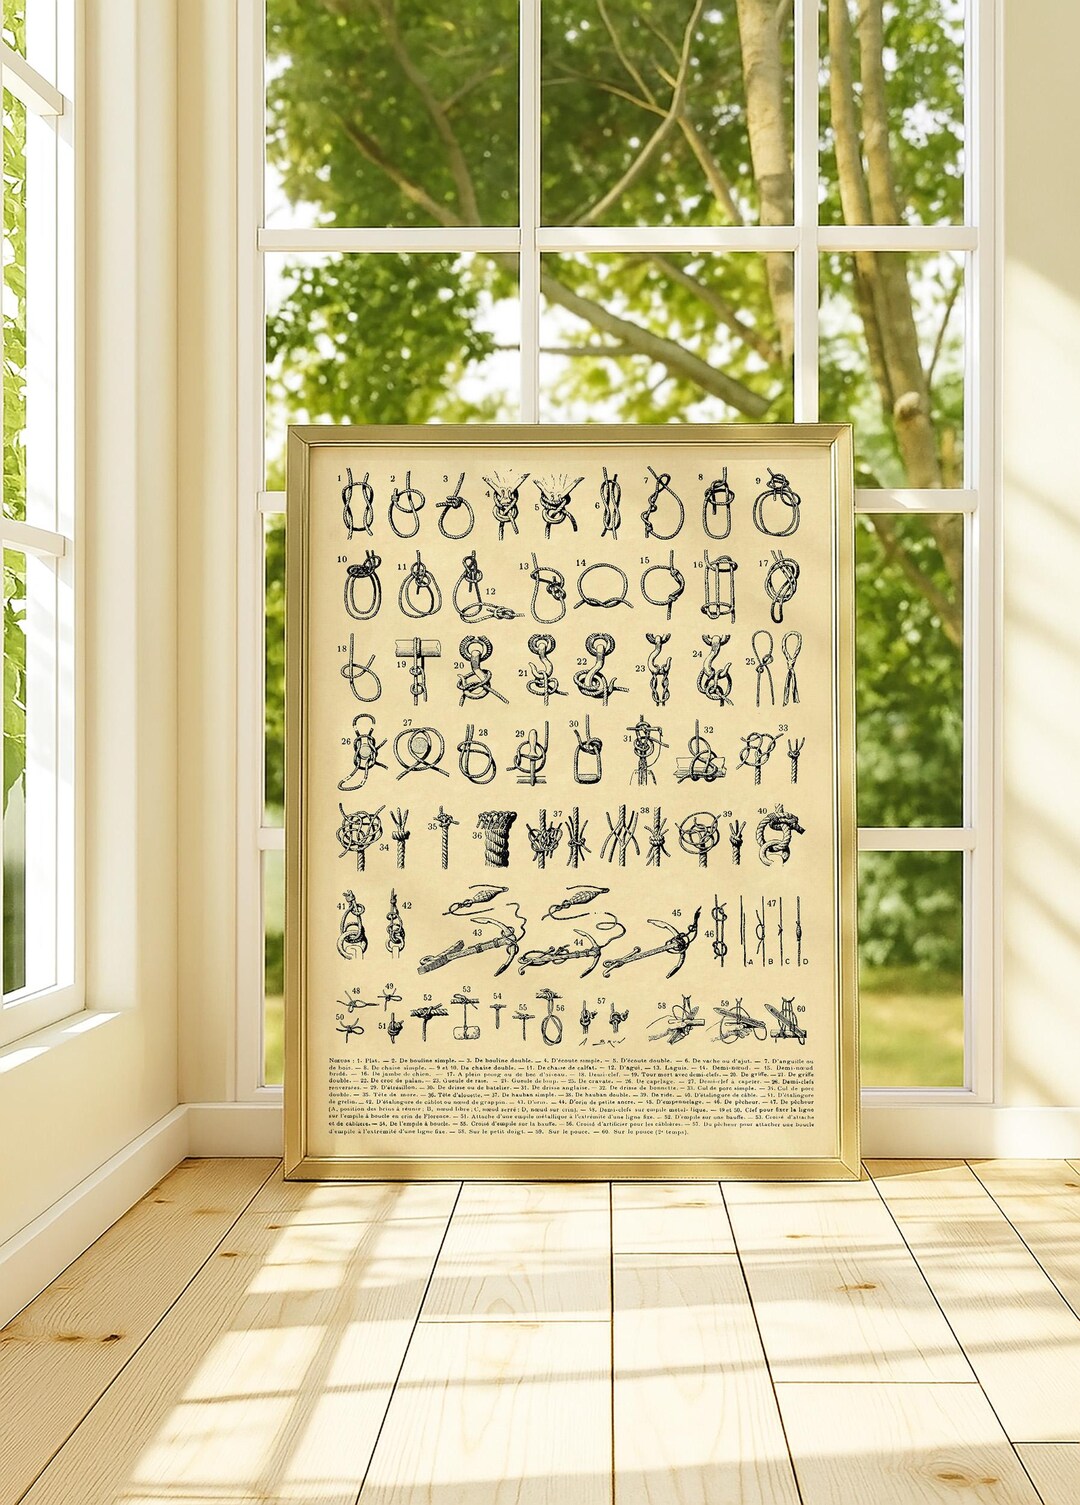 1 2 3 4 5 6 7 8 9
10 11 12 13 14 15 16 17
18 19 20 21 22 23 24 25
26 27 28 29 30 31 32 33
34 35 36 37 38 39 40
41 42 43 44 45 46 47
A B C D
48 49 50 51 52 53 54 55 56 57 58 59 60
A B
Nœuds : 1. Plat. — 2. De bouline simple. — 3. De bouline double. — 4. D'écoute simple. — 5. D'écoute double. — 6. De vache ou d'ajut. — 7. D'anguille ou
de bois. — 8. De chaise simple. — 9 et 10. De chaise double. — 11. De chaise de calfat. — 12. D'agui. — 13. Laguis. — 14. Demi-nœud. — 15. Demi-nœud
— 16. De jambe de chien. — 17. A plein poing ou de bec d'oiseau. — 18. Demi-clef. — 19. Tour mort avec demi-clefs. — 20. De griffe. — 21. De griffe
double. — 22. De croc de palan. — 23. Gueule de raie. — 24. Gueule de loup. — 25. De cravate. — 26. De capelage. — 27. Demi-clef à capeler. — 28. Demi-clefs
renversées. — 29. D'étrésillon. — 30. De drisse ou de batelier. — 31. De drisse anglaise. — 32. De drisse de bonnette. — 33. Cul de porc simple. — 34. Cul de porc
double. — 35. Tête de more. — 36. Tête d'alouette. — 37. De hauban simple. — 38. De hauban double. — 39. De ride. — 40. D'étalingure de câble. — 41. D'étalingure
de grelin. — 42. D'étalingure de câblot ou nœud de grappin. — 43. D'orin. — 44. D'orin de petite ancre. — 45. D'empennelage. — 46. De pêcheur. — 47. De pêcheur
(A, position des brins à réunir ; B, nœud libre ; C, nœud serré ; D, nœud sur crin). — 48. Demi-clefs sur empile métallique. — 49 et 50. Clef pour fixer la ligne
sur l'empile à boucle en crin de Florence. — 51. Attache d'une empile métallique à l'extrémité d'une ligne fixe. — 52. D'empile sur une bauffe. — 53. Croisé d'attache
et de câblière. — 54. De l'empile à boucle. — 55. Croisé d'empile sur la bauffe. — 56. Croisé d'artificier pour les câblières. — 57. Du pêcheur pour attacher une boucle
d'empile à l'extrémité d'une ligne fixe. — 58. Sur le petit doigt. — 59. Sur le pouce. — 60. Sur le pouce (2e temps).